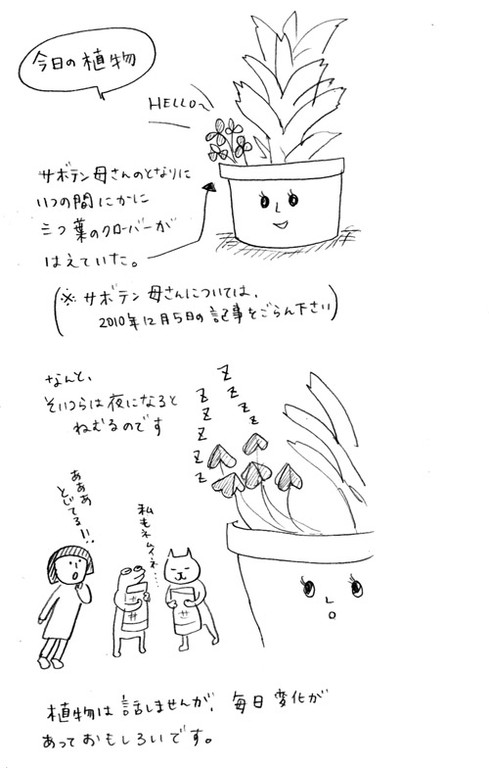 今日の植物
HELLO〜
サボテン母さんのとなりに
いつの間にかに
三つ葉のクローバーが
はえていた。
(※ サボテン母さんについては、
2010年12月5日の記事をごらん下さい)
なんと、
そいつらは夜になると
ねむるのです
Z Z Z Z Z Z
Z Z Z Z
あああ
とじてる!!
私もネムイネ……
植物は話しませんが、毎日変化が
あっておもしろいです。